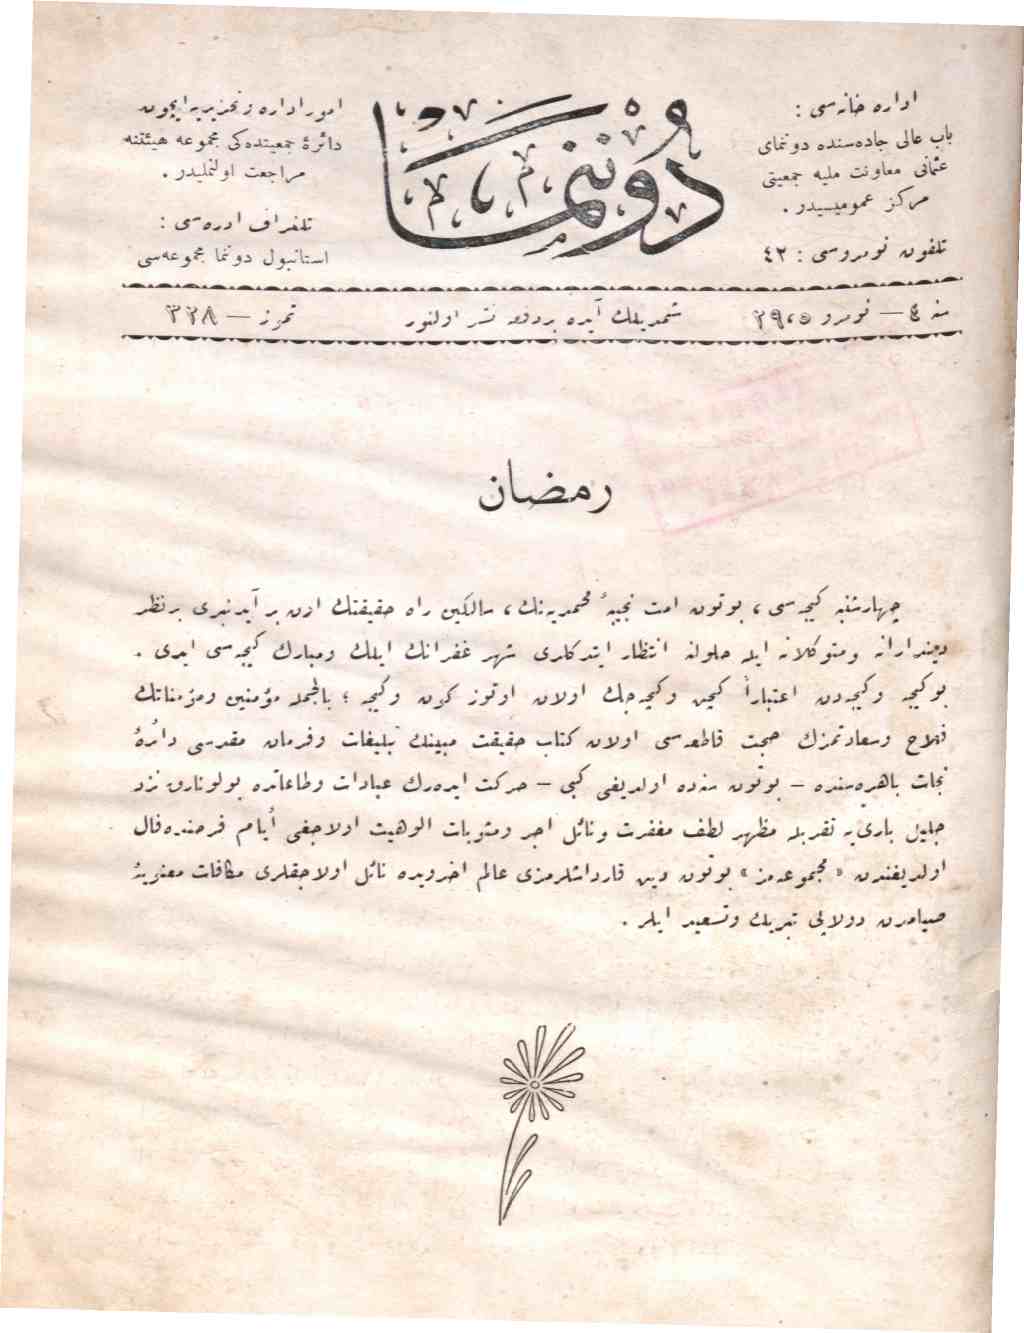 اداره خانه سی :
باب عالی جاده‌سنده دوننمای
عثمانی معاونت ملیه جمعیتی
مرکز عمومیسیدر .
تلفون نومروسی : ٤٢
دوننما
امور اداره و تحریریه ایچون
دائرهٔ جمعیتده‌کی مجموعه هیئتنه
مراجعت اولنملیدر .
تلغراف ادره سی :
استانبول دوننما مجموعه‌سی
سنه ٤ — نومرو
شمدیلك آیده بر دفعه نشر اولنور
تموز — ٣٢٨
رمضان
چهارشنبه کیجه سی ، بوتون امت نجیبهٔ محمدیه‌نك ، سالکین راه حقیقتك اون بر آیدنبری بر نظر
دیندارانه ومتوکلانه ایله حلولنه انتظار ایتدکلری شهر غفرانك ایلك ومبارك کیجه سی ایدی .
بوکیجه وکیجه‌دن اعتباراً کچن وکچه‌جك اولان اوتوز کون وکیجه ؛ بالجمله مؤمنین ومؤمناتك
فلاح وسعادتمزك حجت قاطعه‌سی اولان کتاب حقیقت مبینك تبلیغات وفرمان مقدسی دائرهٔ
نجات باهره‌سنده — بوتون سنه‌ده اولدیغی کبی — حرکت ایده‌رك عبادات وطاعاتده بولونارق نزد
جلیل باری‌یه تقربله مظهر لطف مغفرت ونائل اجر ومثوبات الوهیت اولاجغی أیام فرخنده‌فال
اولدیغندن « مجموعه‌مز » بوتون دین قارداشلرمزی عالم اخرویده نائل اولاجقلری مکافات معنویهٔ
صیامدن دولایی تبریك وتسعید ایلر .